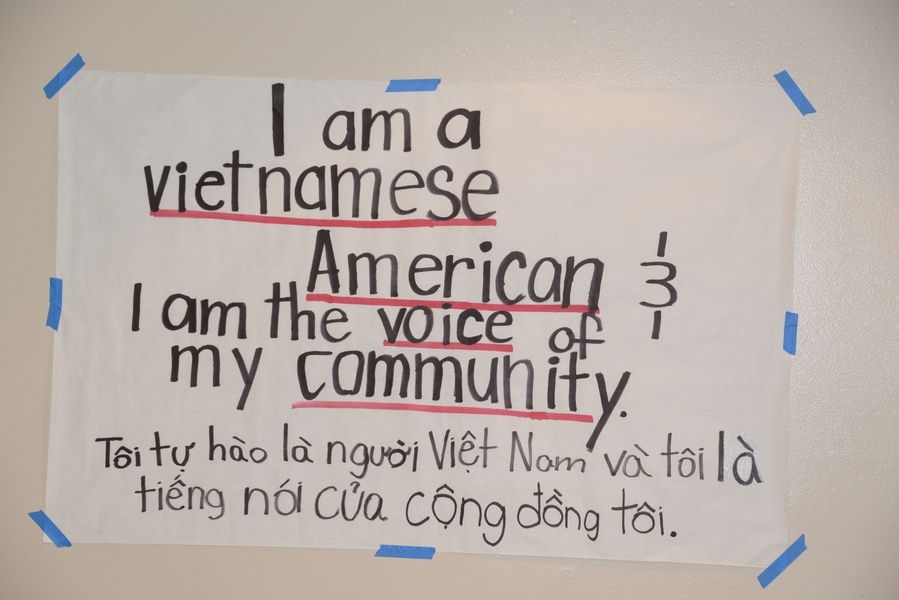 I am a
vietnamese
American &
I am the voice of
my community.
Tôi tự hào là người Việt Nam và tôi là
tiếng nói của cộng đồng tôi.